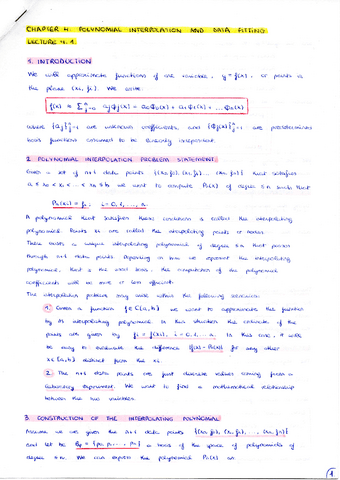 CHAPTER 4: POLYNOMIAL INTERPOLATION AND DATA FITTING.
LECTURE 4.1.
1. INTRODUCTION
We will approximate functions of one variable, y = f(x), or points in
the plane (xi, fi). We write:
f(x) ≈ Σ aj ϕj(x) = a0ϕ0(x) + a1ϕ1(x) + ...
where {aj} are unknown coefficients, and {ϕj(x)} are predetermined
basis functions assumed to be linearly independent.
2. POLYNOMIAL INTERPOLATION PROBLEM STATEMENT:
Given a set of n+1 data points {(x0, f0), (x1, f1), ... (xn, fn)} that satisfies
a ≤ x0 < x1 < ... < xn ≤ b we want to compute Pn(x) of degree ≤ n such that
Pn(xi) = fi, i = 0, 1, ..., n.
A polynomial that satisfies these conditions is called the interpolating
polynomial. Points xi are called the interpolating points or nodes.
There exists a unique interpolating polynomial of degree ≤ n that passes
through n+1 data points. Depending on how we represent the interpolating
polynomial, that is the used basis, the computation of the polynomial
coefficients will be more or less efficient.
The interpolation problem may arise within the following scenarios:
1 Given a function f ∈ C[a,b] we want to approximate this function
by its interpolating polynomial. In this situation the ordinates of the
points are given by fi = f(xi), i = 0, 1, ..., n. In this case, it will
be easy to evaluate the difference |f(x) - Pn(x)| for any other
x ∈ [a,b] distinct from the xi.
2 The n+1 data points are just discrete values coming from a
laboratory experiment. We want to find a mathematical relationship
between the two variables.
3. CONSTRUCTION OF THE INTERPOLATING POLYNOMIAL
Assume we are given the n+1 data points {(x0, f0), (x1, f1), ..., (xn, fn)}
and let be = {p0, p1, ..., pn} a basis of the space of polynomials of
degree ≤ n. We can express the polynomial Pn(x) as:
1